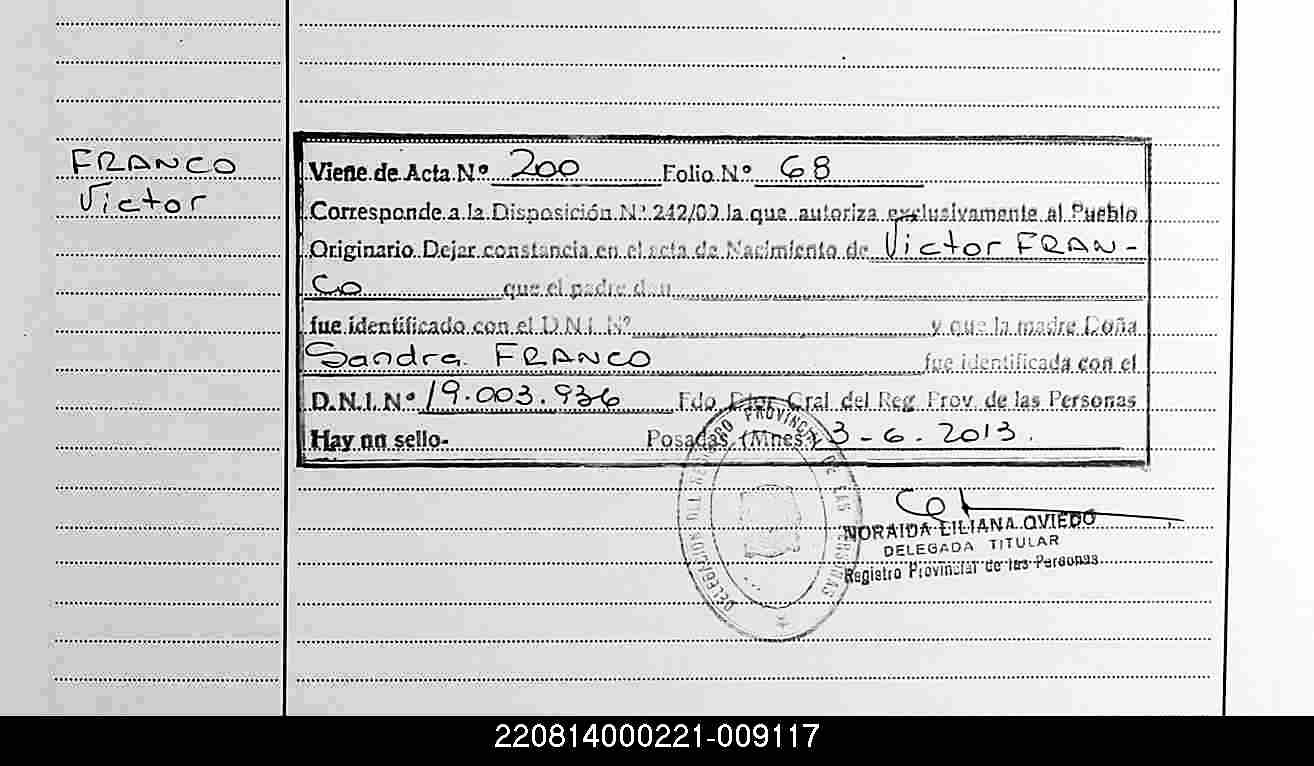 FRANCO
Victor
Viene de Acta Nº 200 Folio Nº 68
Corresponde a la Disposición Nº 242/02 la que autoriza exclusivamente al Pueblo
Originario Dejar constancia en el acta de Nacimiento de Victor FRAN-
Co que el padre don
fue identificado con el D.N.I. Nº y que la madre Doña
Sandra FRANCO fue identificada con el
D.N.I. Nº 19.003.936 Fdo Dtor Gral del Reg Prov. de las Personas
Hay un sello- Posadas (Mnes) 3-6-2013.
DELEGACION DEL REGISTRO PROVINCIAL DE LAS PERSONAS
NORAIDA LILIANA OVIEDO
DELEGADA TITULAR
Registro Provincial de las Personas
220814000221-009117